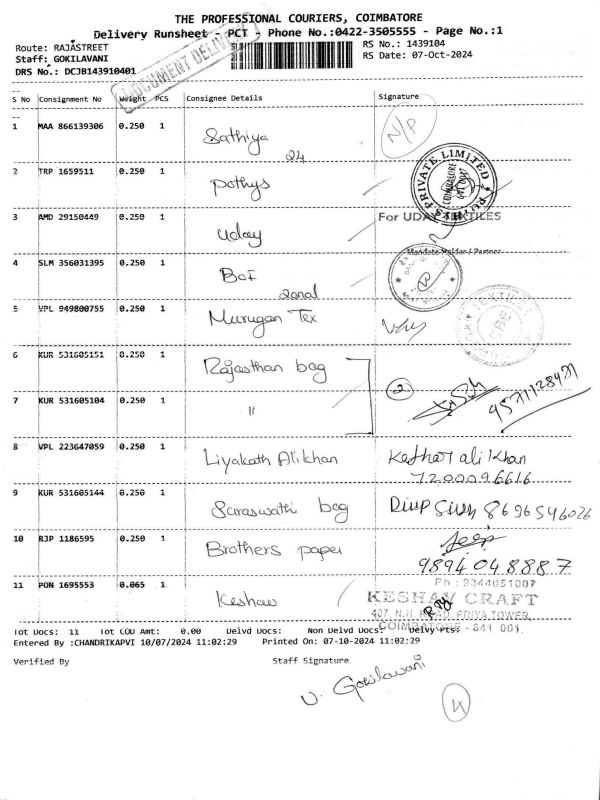 THE PROFESSIONAL COURIERS, COIMBATORE
Delivery Runsheet - PCT - Phone No.:0422-3505555 - Page No.:1
Route: RAJASTREET
RS No.: 1439104
Staff: GOKILAVANI
RS Date: 07-Oct-2024
DRS No.: DCJB143910401
DOCUMENT DELIVERY
S No Consignment No Weight PCS Consignee Details Signature
1 MAA 866139306 0.250 1 Sathiya N/P
24
2 TRP 1659511 0.250 1 pothys
PRIVATE LIMITED
COIMBATORE
641 001
3 AMD 29150449 0.250 1 uday
For UDAY TEXTILES
4 SLM 356031395 0.250 1 BoI
5 VPL 949800755 0.250 1 Murugan Tex
TEXTILE
CBE
6 KUR 531605151 0.250 1 Rajasthan bag 2
7 KUR 531605104 0.250 1 "
8 VPL 223647059 0.250 1 Liyakath Alikhan
ali Khan
7200096616
9 KUR 531605144 0.250 1 Saraswathi bag
8696546026
10 RJP 1186595 0.250 1 Brothers paper
9894048887
11 PON 1695553 0.065 1 Keshav
Ph : 9344051007
KESHAV CRAFT
407, N.H. ROAD, PRIYA TOWER,
COIMBATORE - 641 001.
Tot Docs: 11 Tot COD Amt: 0.00 Delvd Docs: Non Delvd Docs: Delvy Pts:
Entered By :CHANDRIKAPVI 10/07/2024 11:02:29 Printed On: 07-10-2024 11:02:29
Verified By Staff Signature
V. Gokilavani